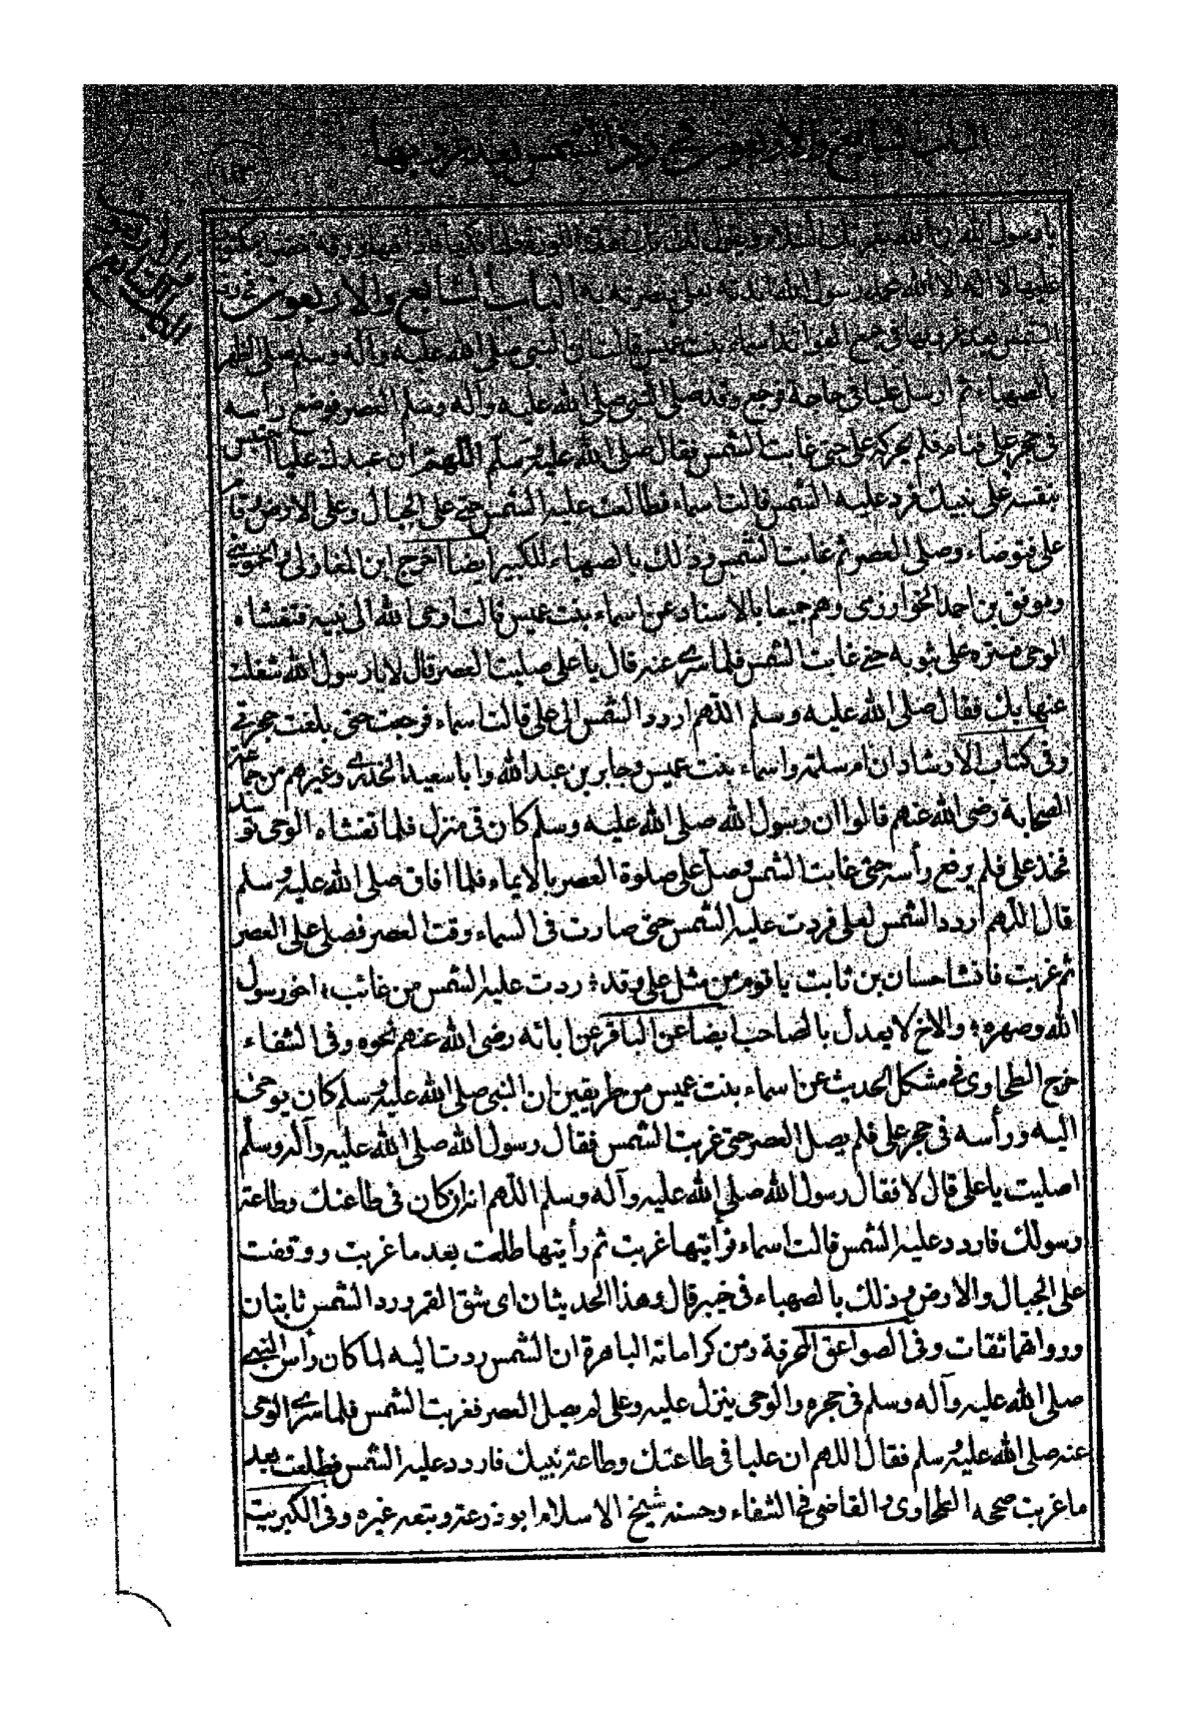 الباب السابع والاربعون فى رد الشمس بعد غروبها
١٤٣
يا رسول الله ان الله يقرئك السلام ويقول لك
عليها لا اله الا الله محمد رسول الله ايدته بعلى ونصرته به الباب السابع والاربعون فى رد
الشمس بعد غروبها فى جمع الفوائد اسماء بنت عميس قالت ان النبى صلى الله عليه وآله وسلم صلى الظهر
بالصهباء ثم ارسل عليا فى حاجة فرجع وقد صلى النبى صلى الله عليه وآله وسلم العصر فوضع رأسه
فى حجر على فنام فلم يحركه على حتى غابت الشمس فقال صلى الله عليه وسلم اللهم ان عبدك عليا احتبس
بنفسه على نبيك فرد عليه الشمس قالت اسماء فطالعت عليه الشمس حتى على الجبال وعلى الارض وقام
على فتوضاء وصلى العصر ثم غابت الشمس وذلك بالصهباء للكبير ايضا اخرج ابن المغازلى والحموينى
وموفق بن احمد الخوارزمى وهم جميعا بالاسناد عن اسماء بنت عميس قالت اوحى الله الى نبيه فتغشاه
الوحى فستره على بثوبه حتى غابت الشمس فلما سرى عنه قال يا على صليت العصر قال لا يا رسول الله شغلت
عنها بك فقال صلى الله عليه وسلم اللهم اردد الشمس الى على قالت اسماء فرجعت حتى بلغت حجرتى
وفى كتاب الارشاد ان ام سلمة واسماء بنت عميس وجابر بن عبد الله وابا سعيد الخدرى وغيرهم من جماعة
الصحابة رضى الله عنهم قالوا ان رسول الله صلى الله عليه وسلم كان فى منزل فلما تغشاه الوحى توسد
فخذ على فلم يرفع رأسه حتى غابت الشمس وصلى على صلوة العصر بالايماء فلما افاق صلى الله عليه وسلم
قال اللهم اردد الشمس لعلى فردت عليه الشمس حتى صارت فى السماء وقت العصر فصلى على العصر
ثم غربت فانشا حسان بن ثابت يا قوم من مثل على وقد ؛ ردت عليه الشمس من غائب ؛ اخو رسول
الله وصهره ؛ والاخ لا يعدل بالصاحب ايضا عن الباقر عن ابائه رضى الله عنهم نحوه وفى الشفاء
خرج الطحاوى فى مشكل الحديث عن اسماء بنت عميس من طريقين ان النبى صلى الله عليه وسلم كان يوحى
اليه ورأسه فى حجر على فلم يصل العصر حتى غربت الشمس فقال رسول الله صلى الله عليه وآله وسلم
اصليت يا على قال لا فقال رسول الله صلى الله عليه وآله وسلم اللهم انه كان فى طاعتك وطاعة
رسولك فاردد عليه الشمس قالت اسماء فرأيتها غربت ثم رأيتها طلعت بعد ما غربت ووقفت
على الجبال والارض وذلك بالصهباء فى خيبر قال وهذا الحديثان اى شق القمر ورد الشمس ثابتان
ورواتهما ثقات وفى الصواعق المحرقة ومن كراماته الباهرة ان الشمس ردت اليه لما كان رأس النبى
صلى الله عليه وآله وسلم فى حجره والوحى ينزل عليه وعلى لم يصل العصر فغربت الشمس فلما سرى الوحى
عنه صلى الله عليه وسلم فقال اللهم ان عليا فى طاعتك وطاعة نبيك فاردد عليه الشمس فطلعت بعد
ما غربت صححه الطحاوى والقاضى فى الشفاء وحسنه شيخ الاسلام ابو زرعة وتبعه غيره وفى الكبريت